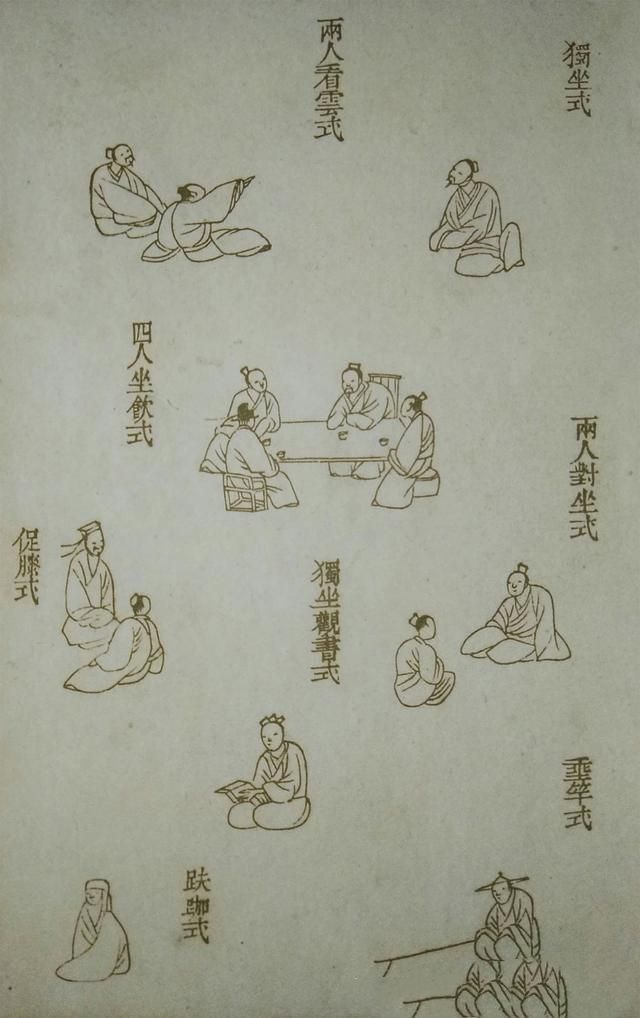 獨坐式
兩人看雲式
兩人對坐式
四人坐飲式
獨坐觀書式
促膝式
垂竿式
趺跏式